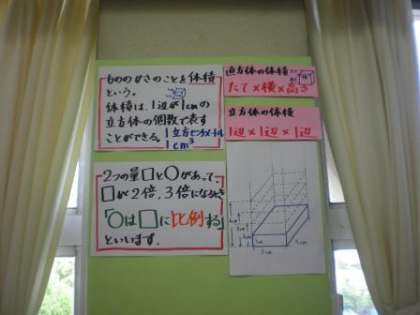 もののかさのことを体積
という。
体積は、1辺が1cmの
立方体の個数で表す
ことができる。
1立方センチメートル
1cm³
2つの量□と○があって、
□が2倍、3倍になるとき
「○は□に比例する」
といいます。
直方体の体積
たて×横×高さ
立方体の体積
1辺×1辺×1辺